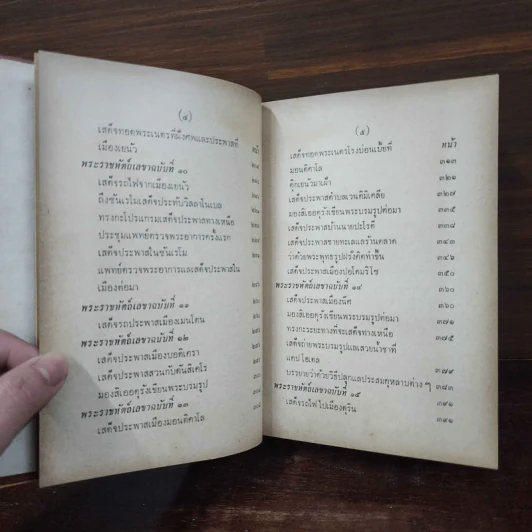 (๔)
เสด็จทอดพระเนตรที่ฝังศพและประพาสที่
หน้า
เมืองเยนัว
พระราชหัตถ์เลขาฉบับที่ ๑๐
เสด็จรถไฟจากเมืองเยนัว
ถึงซันเรโมเสด็จประทับวิลลาโนเบล
ทรงกะโปรแกรมเสด็จประพาสทางเหนือ
ประชุมแพทย์ตรวจพระอาการครั้งแรก
เสด็จประพาสในซันเรโม
แพทย์ตรวจพระอาการและเสด็จประพาสใน
เมืองต่อมา
พระราชหัตถ์เลขาฉบับที่ ๑๑
เสด็จรถประพาสเมืองเมนโตน
พระราชหัตถ์เลขาฉบับที่ ๑๒
เสด็จประพาสเมืองบอดิเครา
เสด็จประพาสสวนกัปตัน
มองสิเออดุรังเขียนพระบรมรูป
พระราชหัตถ์เลขาฉบับที่ ๑๓
เสด็จประพาสเมืองมอนติคาโล
(๕)
หน้า
เสด็จทอดพระเนตรโรงบ่อนเบี้ยที่
มอนติคาโล ๓๑๓
ดุ๊กเยนัวมาเฝ้า ๓๒๑
เสด็จประพาสตำบลเวนติมิเคลีย ๓๒๗
มองสิเออดุรังเขียนพระบรมรูปต่อมา ๓๓๕
เสด็จประพาสบ้านนายปะโรดี ๓๓๘
เสด็จประพาสชายทะเลแลร้านตลาด ๓๔๓
ว่าด้วยพระพุทธรูปฝรั่งคิดทำขึ้น ๓๔๖
เสด็จประพาสเมืองปอโตมริโซ ๓๕๐
พระราชหัตถ์เลขาฉบับที่ ๑๔ ๓๖๐
เสด็จประพาสเมืองนีศ ๓๖๐
มองสิเออดุรังเขียนพระบรมรูปต่อมา ๓๗๑
ทรงกะระยะทางที่จะเสด็จทางเหนือ ๓๗๕
เสด็จถ่ายพระบรมรูปแลเสวยน้ำชาที่
แคปโฮเตล ๓๗๙
บรรยายว่าด้วยวิธีปลูกแลประสมกุหลาบต่างๆ ๓๘๓
พระราชหัตถ์เลขาฉบับที่ ๑๕ ๓๙๑
เสด็จรถไฟไปเมืองตุริน ๓๙๑